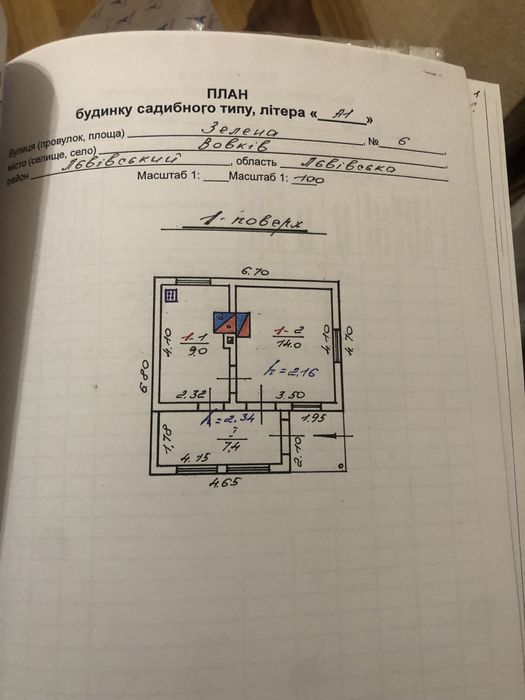 ПЛАН
будинку садибного типу, літера « А1 »
Вулиця (провулок, площа) Зелена, № 6,
місто (селище, село) Вовків
район Львівський, область Львівська
Масштаб 1: ___ Масштаб 1: 100
1- поверх
6.70
1-1
9.0
4.10
1-2
14.0
4.10
4.70
6.80
h=2.16
2.32
3.50
h=2.34
1.95
1,78
I
7,4
2.10
4.15
4.65
1